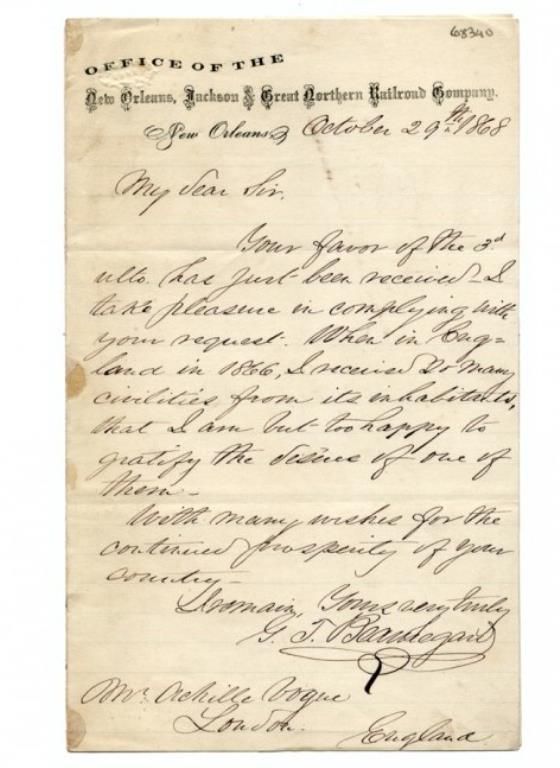 68340
OFFICE OF THE
New Orleans, Jackson & Great Northern Railroad Company.
New Orleans, October 29th 1868
My dear Sir,
Your favor of the 3d
ulto. has just been received – I
take pleasure in complying with
your request. When in Eng=
land in 1866, I received so many
civilities from its inhabitants,
that I am but too happy to
gratify the desires of one of
them –
With many wishes for the
continued prosperity of your
country –
I remain, Yours very truly
G. T. Beauregard
Mr. Achille Vogue
London.
England.